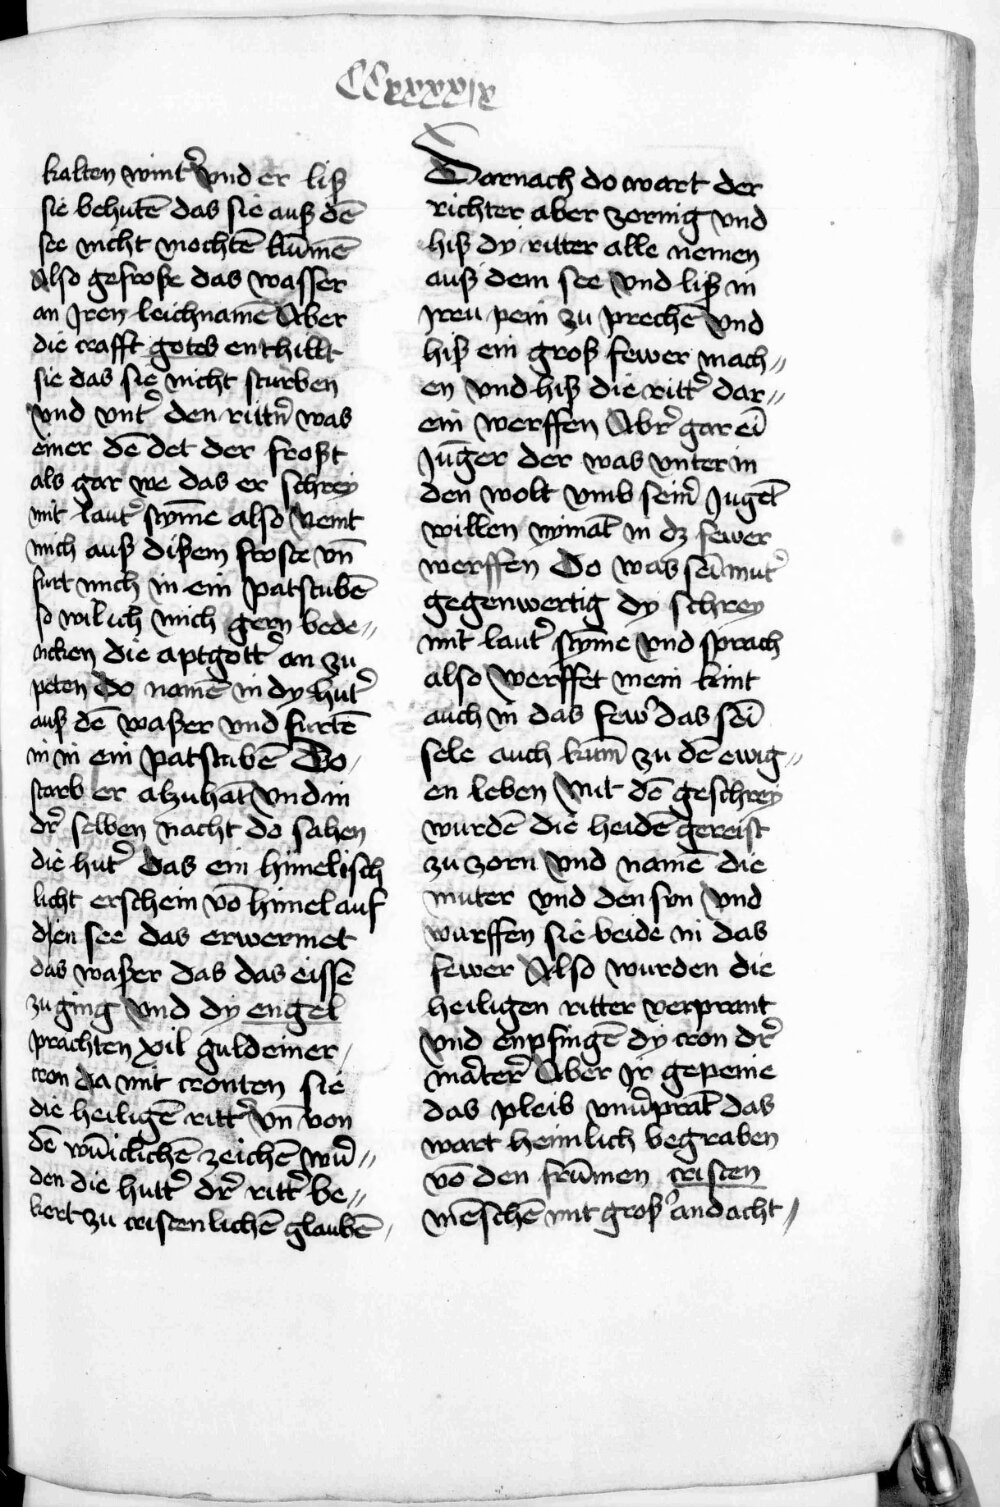 CCxxxxix
kalten wint&#x27;&#x27; vnd er liß
sie behutē das sie auß dē
see nicht mochtē kūmē
Also gefroße das wasser
an Jren leichnamē Aber
die crafft gotes enthillt
sie das sie nicht sturben
vnd vnt&#x27; den rittn&#x27; was
einer dē det der froßt
als gar we das er schrey
mit laut&#x27; stȳme also Nemt
mich auß dißem froste vn̄
furt mich in ein patstubē
so wil ich mich gern bede„
ncken die aptgott&#x27; an zu
peten Do namē in dy hut&#x27;
auß dē waßer vnd furtē
in in ein patstubē Do
starb er alzuhāt Vnd in
dr&#x27; selben nacht do sahen
die hut&#x27; das ein himelisch
licht erschein vō himel auf
den see das erwermet
das waßer das das eisse
zu ging Vnd dy engel
prachten xxil guldeiner
cron da mit cronten sie
die heiligē ritt&#x27; vn̄ von
dē wūiclichē zeichē wur&#x27;„
den die hutt&#x27; dr&#x27; ritt&#x27; be„
kert zu cristenlichē glaubē
Darnach do wart der
richter aber zornig vnd
hiß dy ritter alle nemen
auß dem see Vnd liß in
Jreu pein zu prechē Vnd
hiß ein groß fewer mach„
en Vnd hiß die ritt&#x27; dar„
ein werffen Abr&#x27; gar eī
Jūger der was vnter in
den wolt vmb seinr&#x27; Jugēt
willen nymāt in dz fewer
werffen Do was sēi mut&#x27;
gegenwertig dy schrey
mit laut&#x27; stȳme Vnd sprach
also Werffet mein kint
auch in das few&#x27; das sēi
sele auch kum̄ zu dē ewig„
en leben Mit dē geschrey
wurdē die heidē gereist
zu zorn Vnd namē die
muter vnd den sun Vnd
wurffen sie beide in das
fewer Also wurden die
heiligen ritter verprant
Vnd enpfingē dy cron dr&#x27;
mārter&#x27; Aber Jr gepeine
das pleib vnu&#x27;prāt das
wart heimlich begraben
vō den frūmen cristen
mēschē mit groß&#x27; andacht